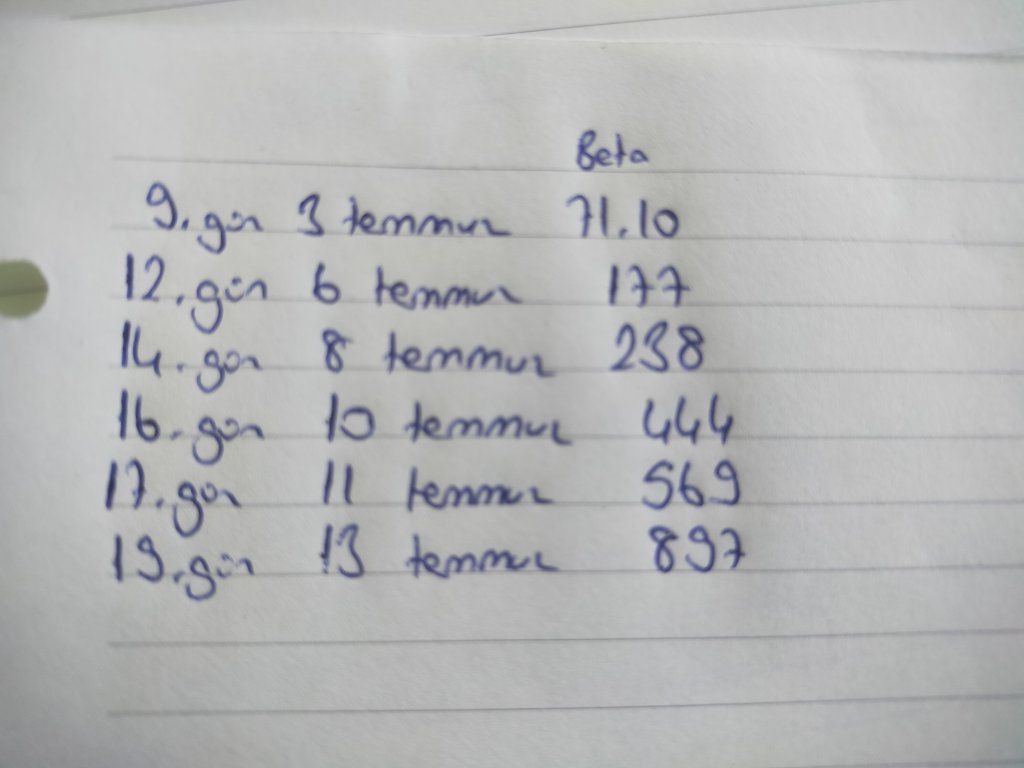 Beta
9. gün 3 temmuz 71.10
12. gün 6 temmuz 177
14. gün 8 temmuz 238
16. gün 10 temmuz 444
17. gün 11 temmuz 569
19. gün 13 temmuz 897